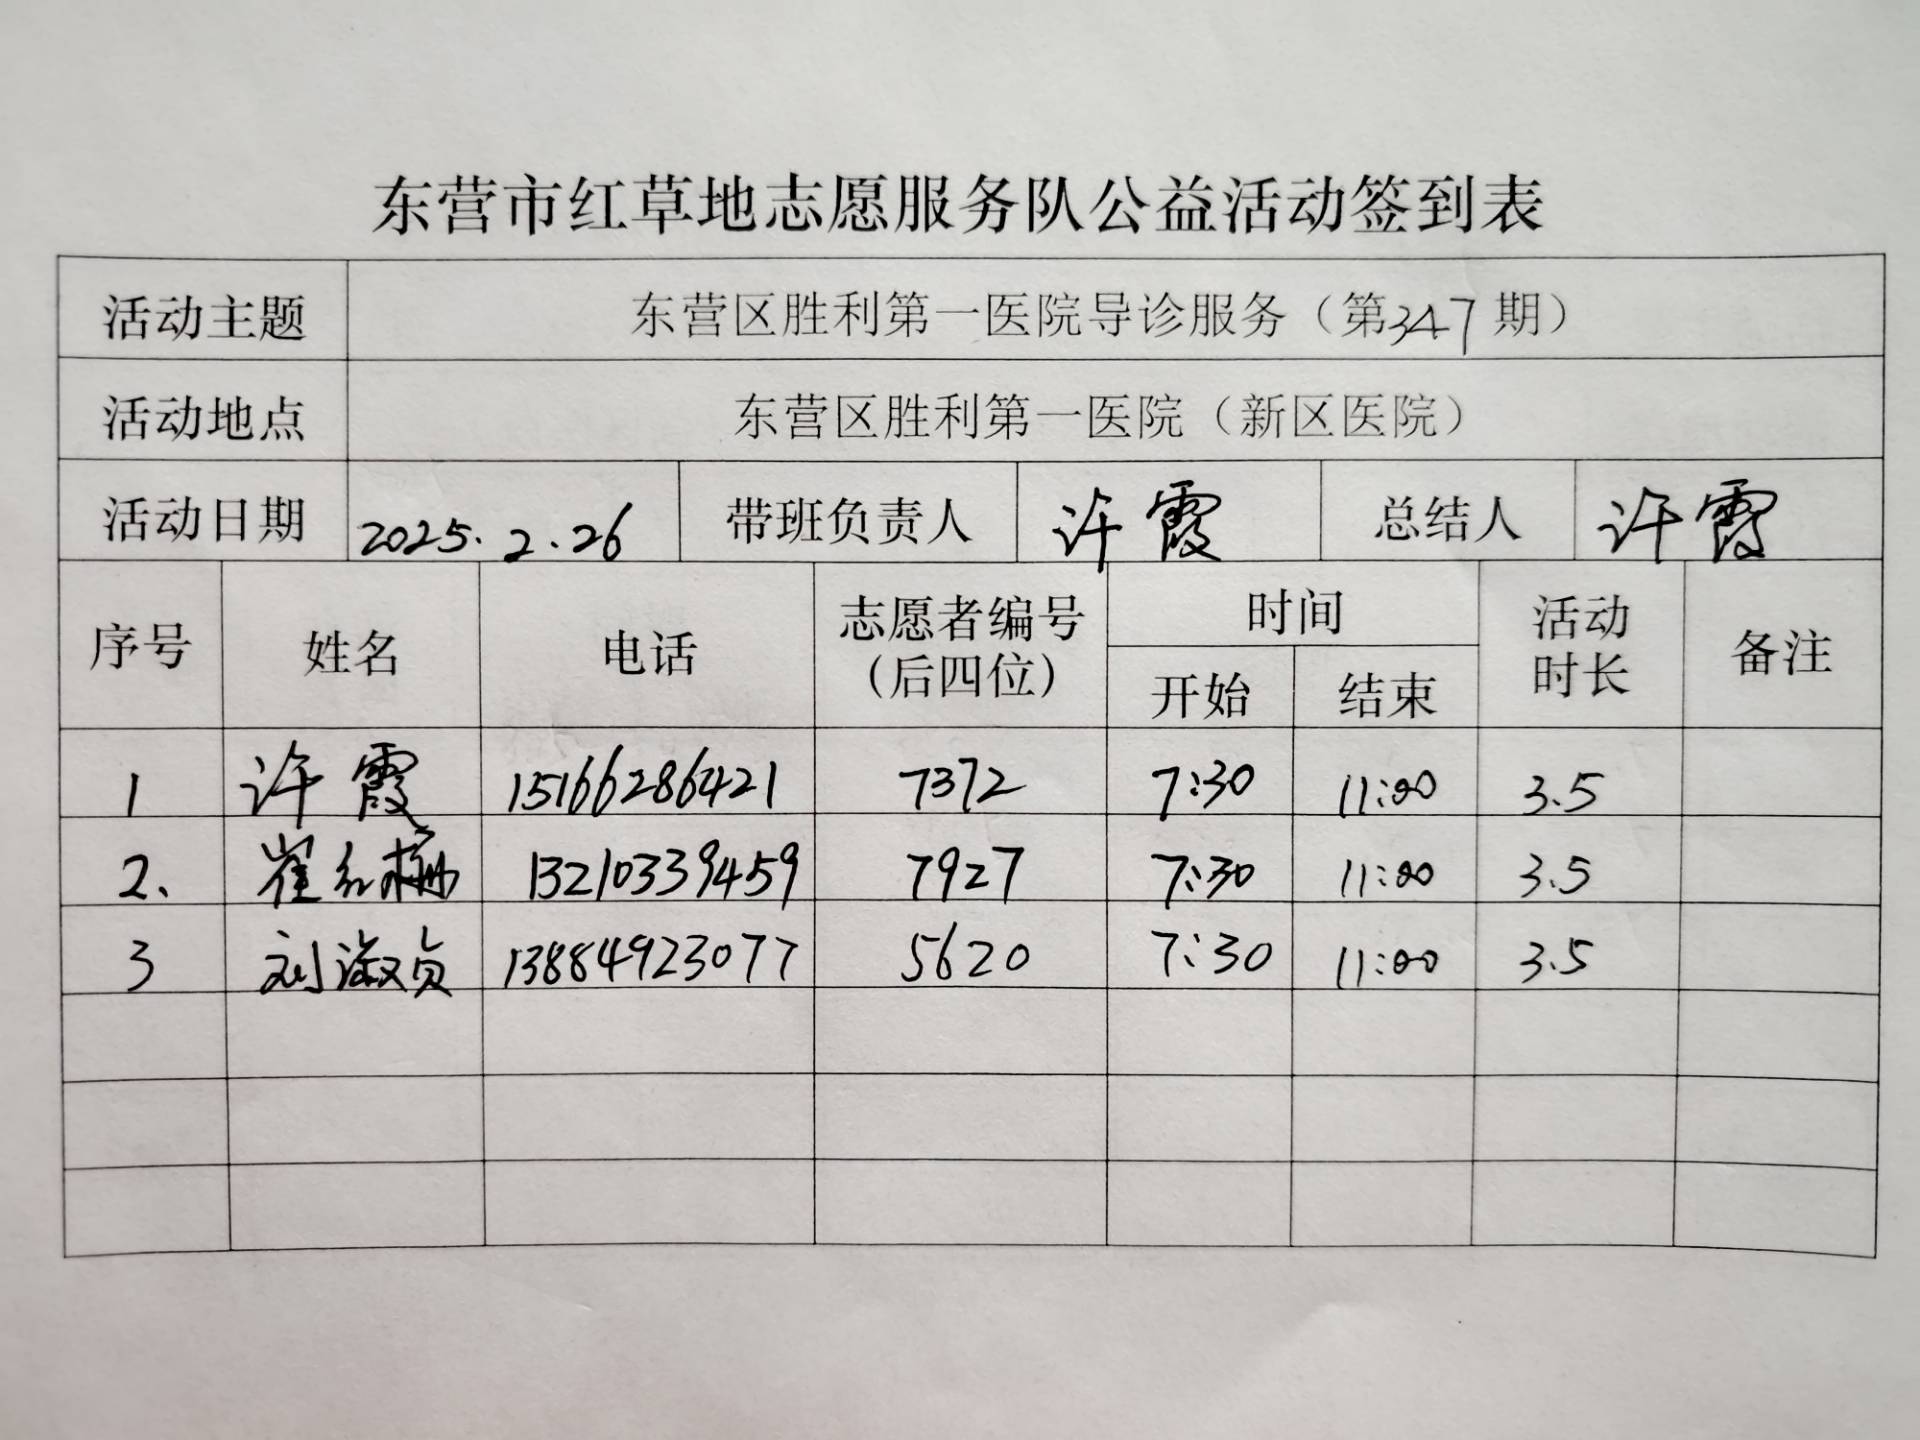 东营市红草地志愿服务队公益活动签到表
活动主题 东营区胜利第一医院导诊服务（第347期）
活动地点 东营区胜利第一医院（新区医院）
活动日期 2025.2.26 带班负责人 许霞 总结人 许霞
序号 姓名 电话 志愿者编号（后四位） 时间 开始 结束 活动时长 备注
1 许霞 15166286421 7372 7:30 11:00 3.5
2、 崔红梅 13210339459 7927 7:30 11:00 3.5
3 刘淑贞 13884923077 5620 7:30 11:00 3.5